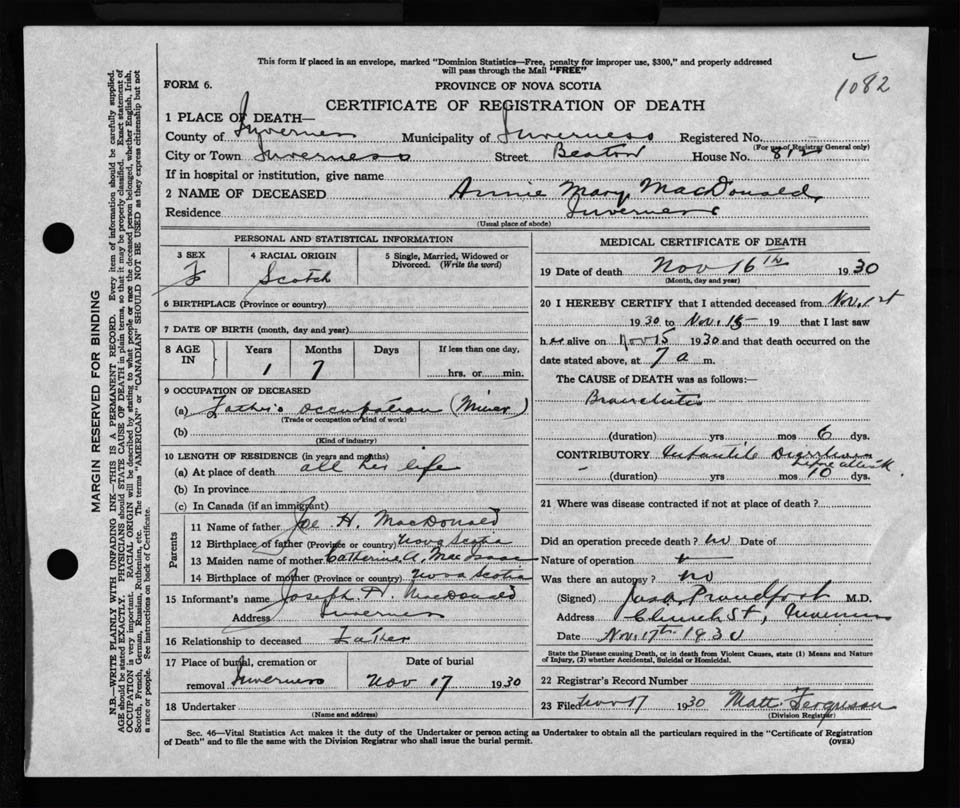 This form if placed in an envelope, marked "Dominion Statistics—Free, penalty for improper use, $300," and properly addressed
will pass through the Mail "FREE"
1082
FORM 6.
PROVINCE OF NOVA SCOTIA
CERTIFICATE OF REGISTRATION OF DEATH
1 PLACE OF DEATH—
County of Inverness Municipality of Inverness Registered No.
(For use of Registrar General only)
City or Town Inverness Street Beaton House No. 812
If in hospital or institution, give name
2 NAME OF DECEASED Annie Mary MacDonald
Residence Inverness
(Usual place of abode)
PERSONAL AND STATISTICAL INFORMATION
3 SEX 4 RACIAL ORIGIN 5 Single, Married, Widowed or
Divorced. (Write the word)
F Scotch
6 BIRTHPLACE (Province or country)
7 DATE OF BIRTH (month, day and year)
8 AGE IN Years Months Days If less than one day,
1 7 hrs. or min.
9 OCCUPATION OF DECEASED
(a) Father's occupation (Miner)
(Trade or occupation or kind of work)
(b)
(Kind of industry)
10 LENGTH OF RESIDENCE (in years and months)
(a) At place of death all her life
(b) In province
(c) In Canada (if an immigrant)
Parents
11 Name of father Joe H. MacDonald
12 Birthplace of father (Province or country) Nova Scotia
13 Maiden name of mother Catherine A. MacIsaac
14 Birthplace of mother (Province or country) Nova Scotia
15 Informant's name Joseph H. MacDonald
Address Inverness
16 Relationship to deceased Father
17 Place of burial, cremation or Date of burial
removal Inverness Nov 17 1930
18 Undertaker
(Name and address)
MEDICAL CERTIFICATE OF DEATH
19 Date of death Nov 16th 1930
(Month, day and year)
20 I HEREBY CERTIFY that I attended deceased from Nov. 1st
1930 to Nov. 15 19 that I last saw
her alive on Nov 15 1930 and that death occurred on the
date stated above, at 7 a m.
The CAUSE OF DEATH was as follows:
Bronchitis
(duration) yrs mos 6 dys.
CONTRIBUTORY Infantile
before attack
(duration) yrs mos 10 dys.
21 Where was disease contracted if not at place of death?
Did an operation precede death? no Date of
Nature of operation
Was there an autopsy? no
(Signed) Proudfoot M.D.
Address Church St, Inverness
Date Nov. 17th 1930
State the Disease causing Death, or in death from Violent Causes, state (1) Means and Nature
of Injury, (2) whether Accidental, Suicidal or Homicidal.
22 Registrar's Record Number
23 Filed Nov 17 1930 Matt. Ferguson
(Division Registrar)
Sec. 46—Vital Statistics Act makes it the duty of the Undertaker or person acting as Undertaker to obtain all the particulars required in the "Certificate of Registration
of Death" and to file the same with the Division Registrar who shall issue the burial permit. (OVER)
MARGIN RESERVED FOR BINDING
N.B.—WRITE PLAINLY WITH UNFADING INK—THIS IS A PERMANENT RECORD. Every item of information should be carefully supplied.
AGE should be stated EXACTLY. PHYSICIANS should STATE CAUSE OF DEATH in plain terms, so that it may be properly classified. Exact statement of
OCCUPATION is very important. RACIAL ORIGIN will be described by stating to what people or race the deceased person belonged, whether English, Irish,
Scotch, French, German, Russian, Ruthenian, etc. The terms "AMERICAN" or "CANADIAN" SHOULD NOT BE USED as they express citizenship but not
a race or people. See instructions on back of Certificate.